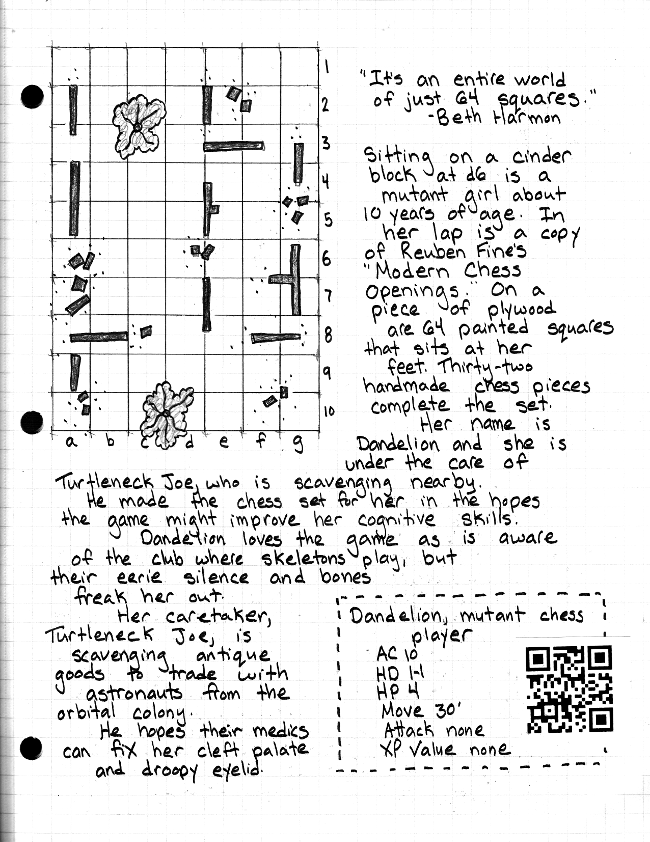 1
2
3
4
5
6
7
8
9
10
a b c d e f g
"It's an entire world
of just 64 squares."
-Beth Harmon
Sitting on a cinder
block at d6 is a
mutant girl about
10 years of age. In
her lap is a copy
of Reuben Fine's
"Modern Chess
Openings." On a
piece of plywood
are 64 painted squares
that sits at her
feet. Thirty-two
handmade chess pieces
complete the set.
Her name is
Dandelion and she is
under the care of
Turtleneck Joe, who is scavenging nearby.
He made the chess set for her in the hopes
the game might improve her cognitive skills.
Dandelion loves the game as is aware
of the club where skeletons play, but
their eerie silence and bones
freak her out.
Her caretaker,
Turtleneck Joe, is
scavenging antique
goods to trade with
astronauts from the
orbital colony.
He hopes their medics
can fix her cleft palate
and droopy eyelid.
Dandelion, mutant chess
player
AC 10
HD 1-1
HP 4
Move 30'
Attack none
XP Value none